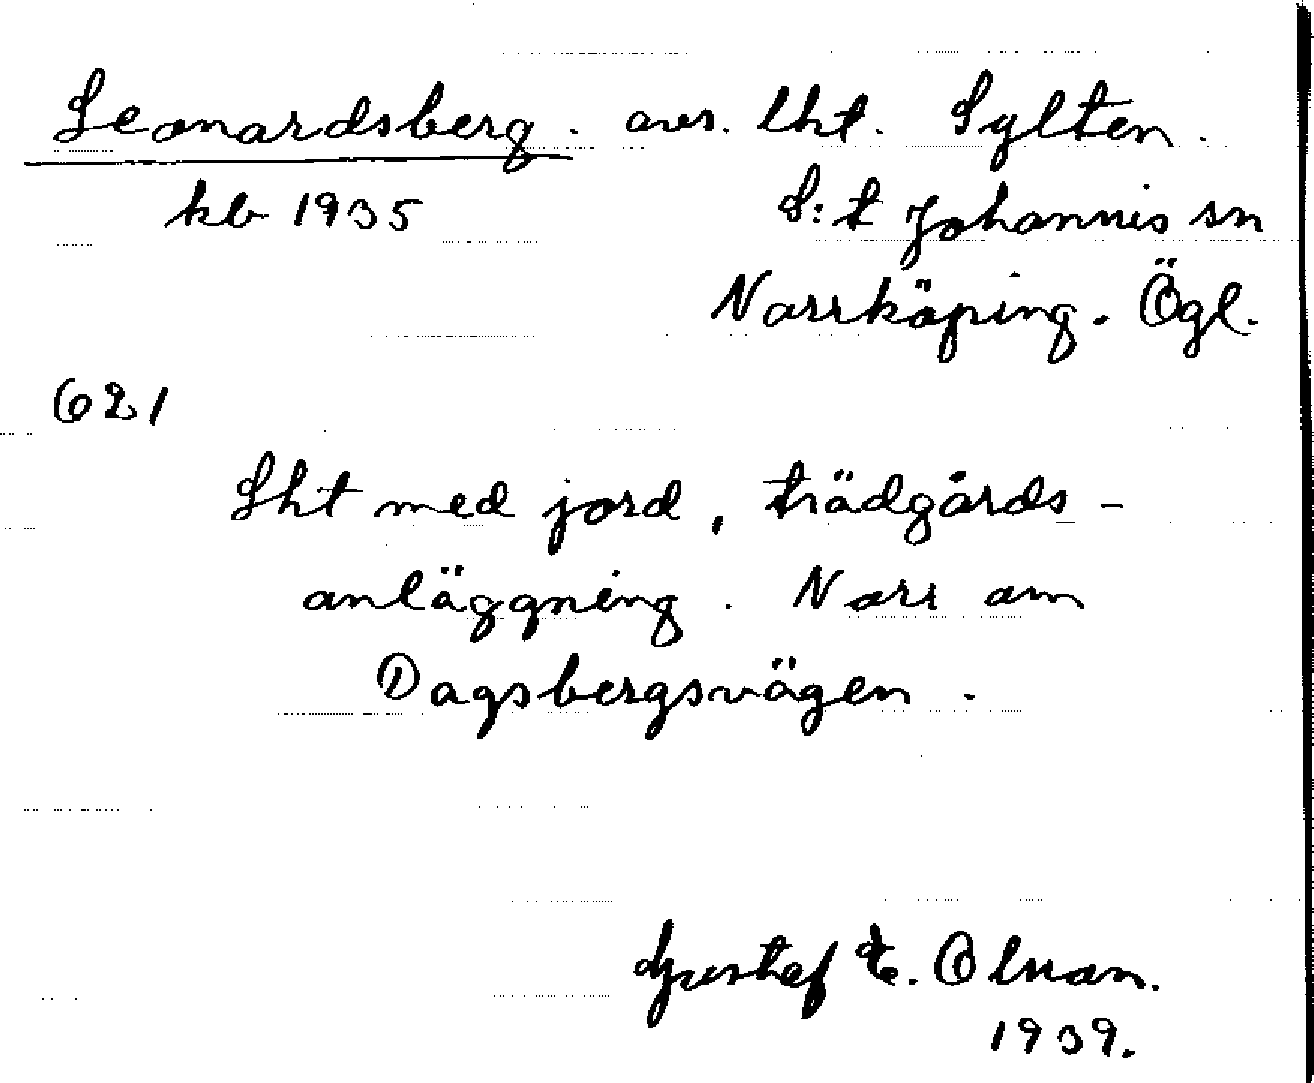 Leonardsberg. avs. lht. Sylten.
kb 1935 S:t Johannis sn
Norrköping. Ögl.
621
Lht med jord, trädgårds-
anläggning. Norr om
Dagsbergsvägen.
Gustef E. Olson.
1939.